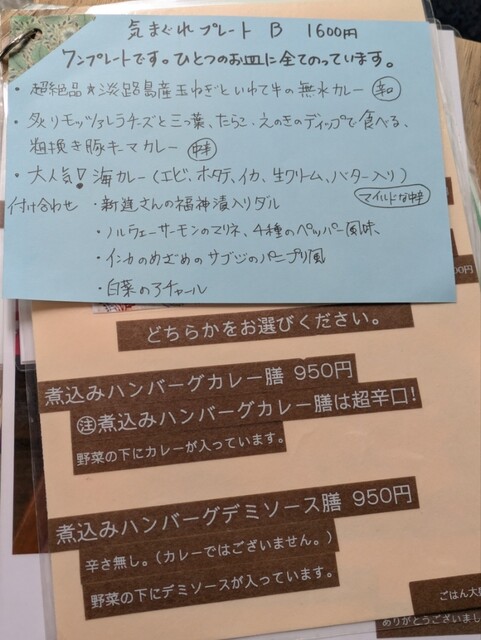 気まぐれプレート B 1600円
ワンプレートです。ひとつのお皿に全てのっています。
・超絶品★淡路島産玉ねぎといわて牛の無水カレー 辛口
・炙りモッツァレラチーズと三つ葉、たらこ、えのきのディップで食べる、
粗挽き豚キーマカレー 中辛
・大人気!海カレー(エビ、ホタテ、イカ、生クリーム、バター入り)
マイルドな中辛
付け合わせ ・新進さんの福神漬入りダル
・ノルウェーサーモンのマリネ、4種のペッパー風味、
・インカのめざめのサブジのパニプリ風
・白菜のアチャール
00円
どちらかをお選びください。
煮込みハンバーグカレー膳 950円
注煮込みハンバーグカレー膳は超辛口!
野菜の下にカレーが入っています。
煮込みハンバーグデミソース膳 950円
辛さ無し。(カレーではございません。)
野菜の下にデミソースが入っています。
ごはん大
ありがとうございまし